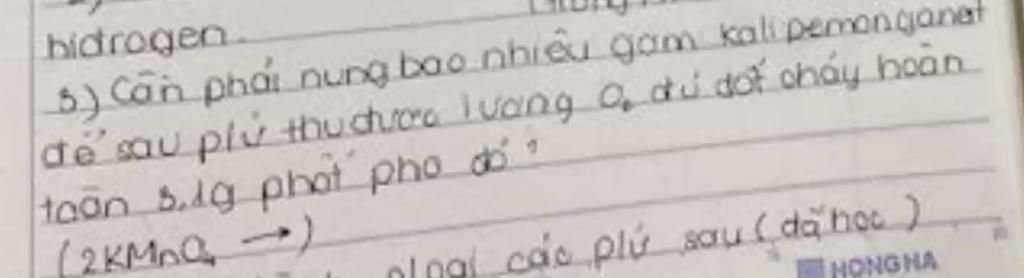 hidrogen.
3) Cần phải nung bao nhiêu gam kali pemanganat
để sau plứ thu được lượng O₂ đủ đốt cháy hoàn
toàn 3,1g phốt pho đó?
(2KMnO₄ →)
các plứ sau (đã học)
HONG HA